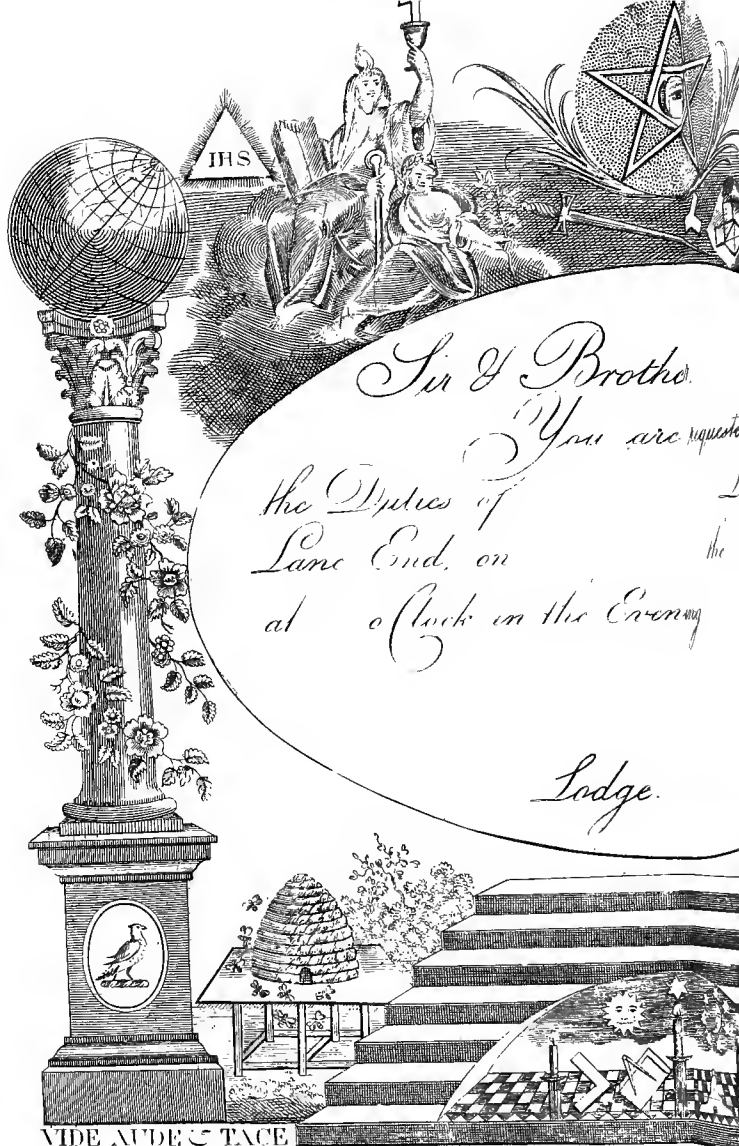 IHS
Sir & Brother
You are
the Duties of
Lane End, on the
at o Clock in the Evening
Lodge.
VIDE AUDE & TACE